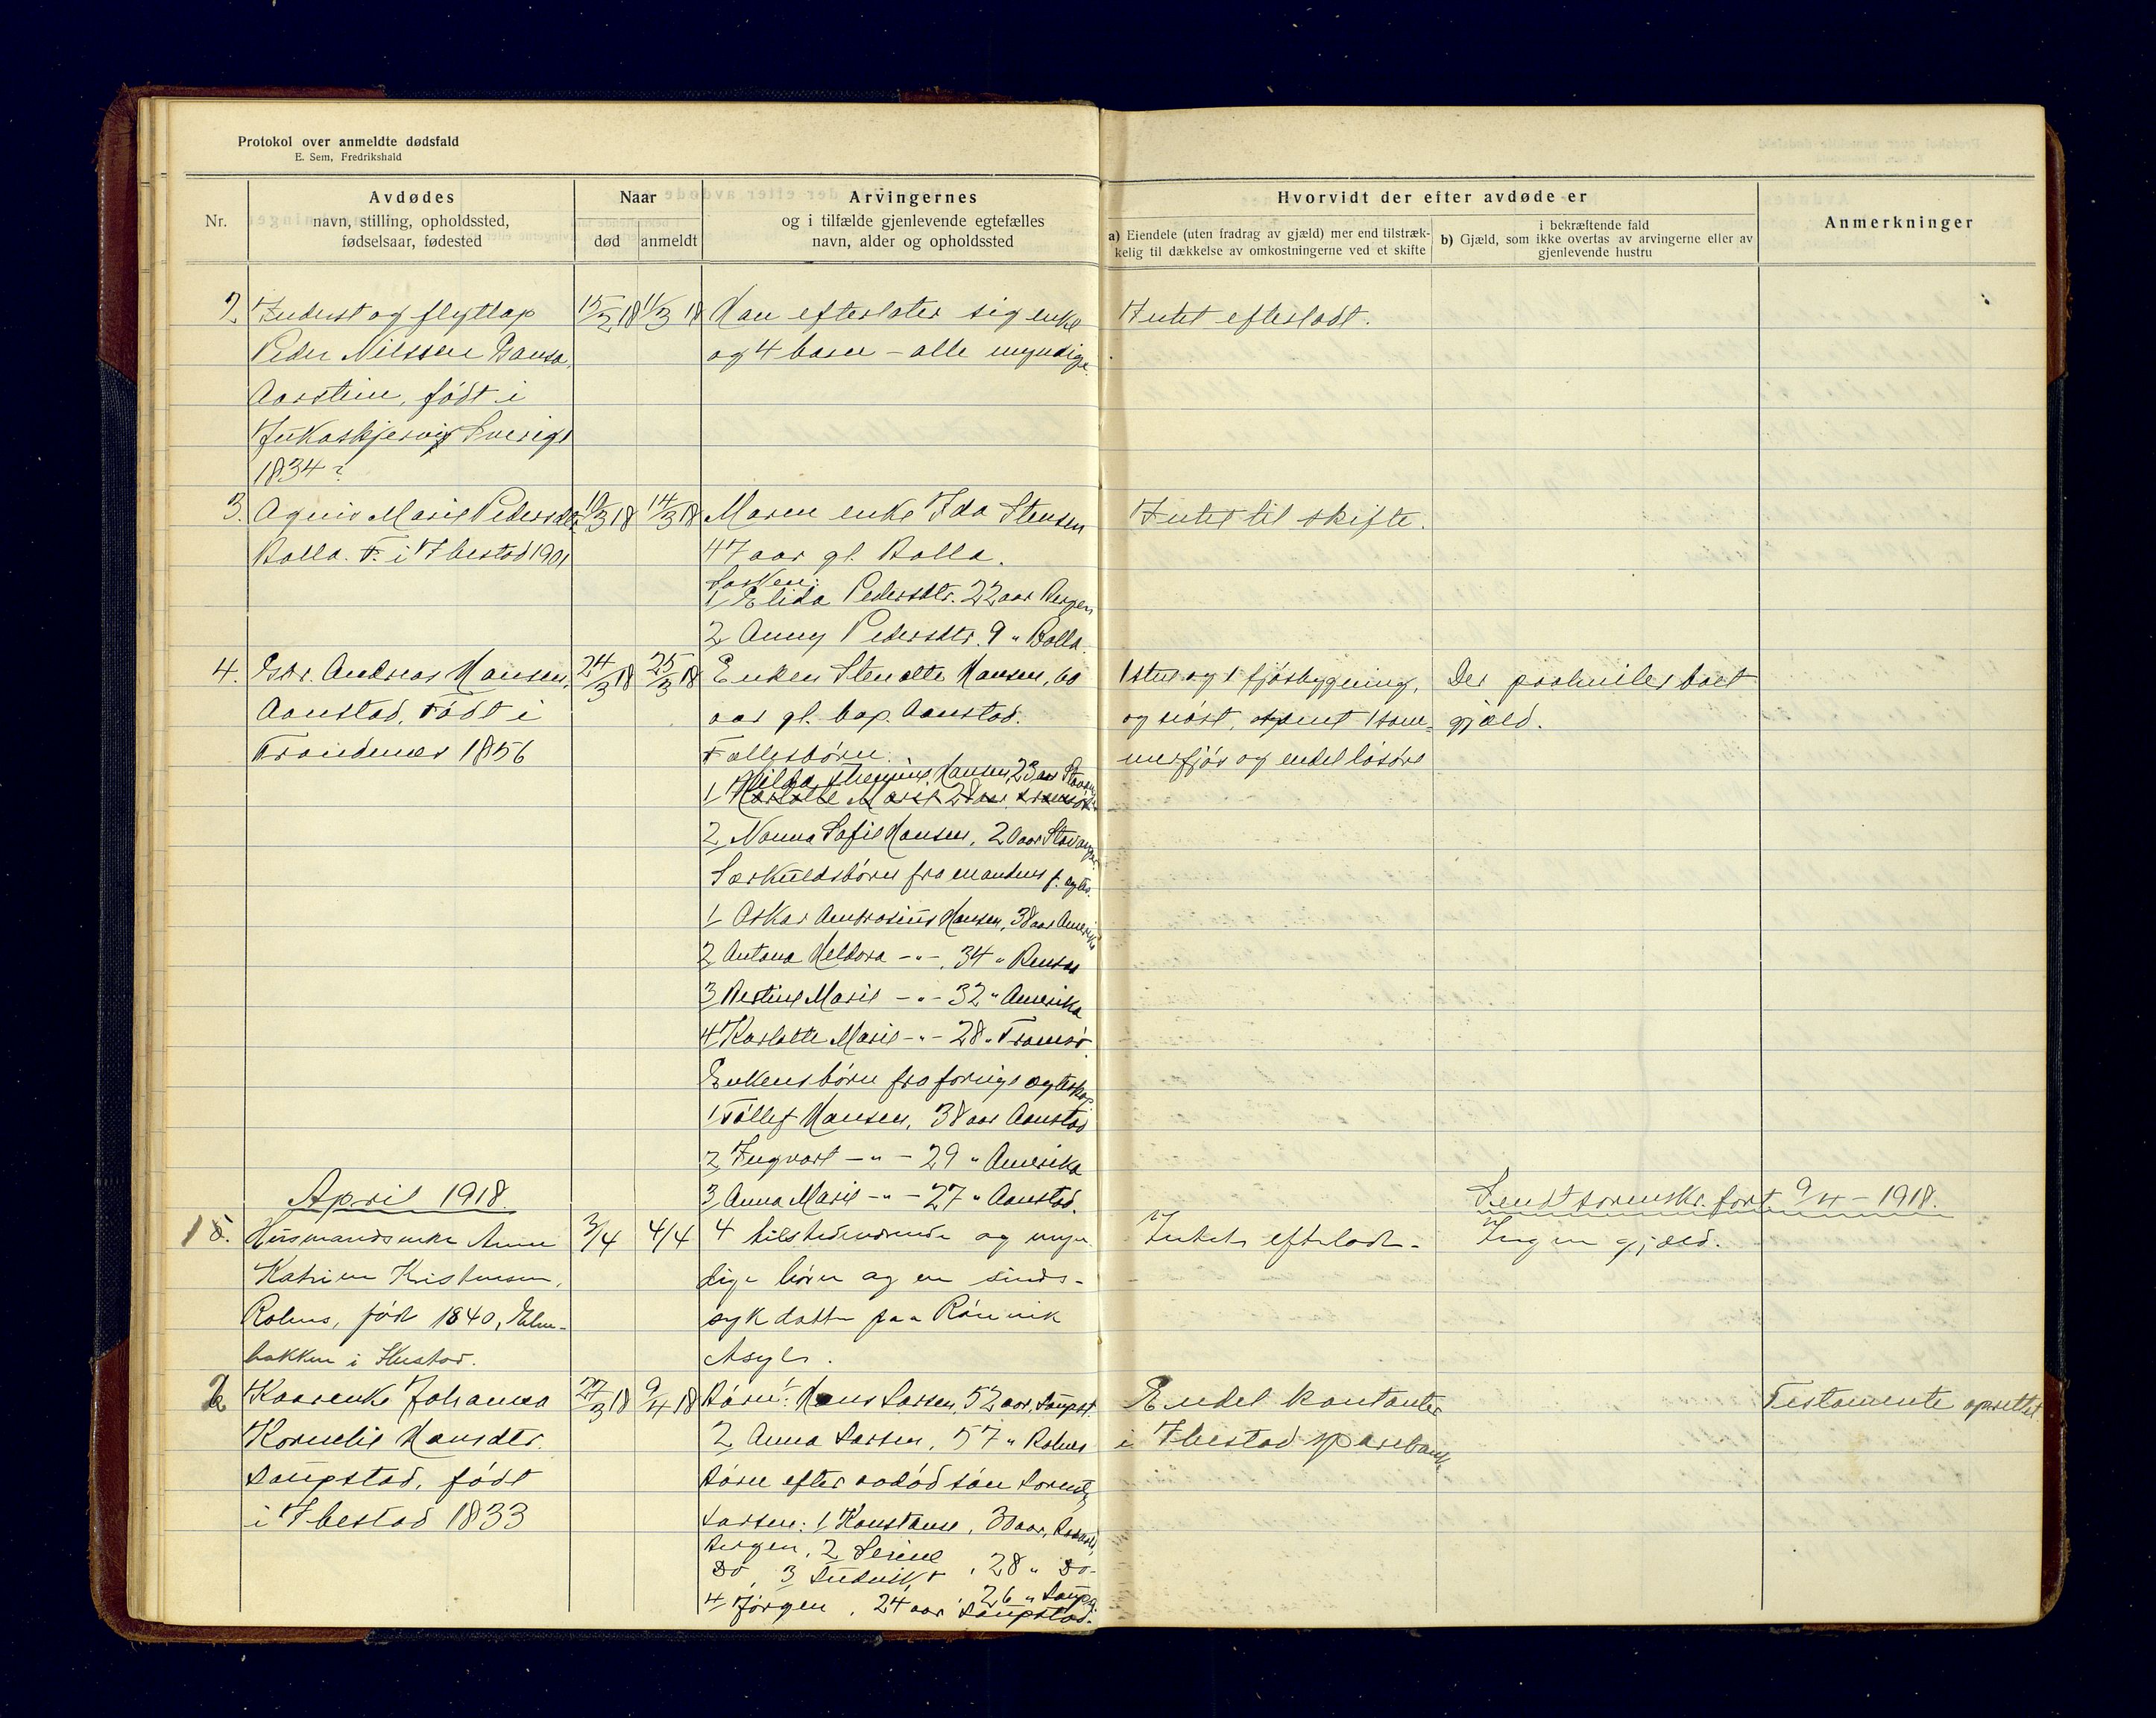 Protokol over anmeldte dødsfald
E. Sem, Fredrikshald
Nr.
Avdødes
navn, stilling, opholdssted,
fødselsaar, fødested
Naar
død
anmeldt
Arvingernes
og i tilfælde gjenlevende egtefælles
navn, alder og opholdssted
Hvorvidt der efter avdøde er
a) Eiendele (uten fradrag av gjæld) mer end tilstræk-
kelig til dækkelse av omkostningerne ved et skifte
i bekræftende fald
b) Gjæld, som ikke overtas av arvingerne eller av
gjenlevende hustru
Anmerkninger
2. Inderst og flytlap
Peder Nilssen
Aarstein, født i
Jukaskjervi Sverige
1834?
15/2 18
11/3 18
Han efterlater sig enke
og 4 barn - alle myndige.
Intet efterladt.
3. Agnis Marie Pedersdtr.
Rolla. F. i Ibestad 1901
10/3 18
14/3 18
Moren enke Ida Stensen
47 aar gl. Rolla.
Søsken:
1 Elida Pedersdtr. 22 aar Bergen
2 Anny Pedersdtr. 9 " Rolla.
Intet til skifte.
4. Gbr. Andreas Hansen,
Aanstad, født i
Trondenes 1856
24/3 18
25/3 18
Enken Stenolte Hansen, 60
aar gl. bop. Aanstad.
Fællesbørn:
Hilda Hansen, 23 aar Stavanger
1 Karlotte Marie 28 aar Tromsø
2 Nanna Sofie Hansen, 20 aar Stavanger.
Særkuldsbørn fra mandens f. egtes.
1 Oskar Ambrosius Hansen, 38 aar Amerika
2 Antona Heldora -"- 34 " Bensas
3 Bertine Marie -"- 32 " Amerika
4 Karlotte Marie -"- 28 " Tromsø.
Enkens børn fra forrige egteskap
1 Tollef Hansen, 38 aar Aanstad
2 Ingvart -"- 29 " Amerika
3 Anna Marie -"- 27 " Aanstad.
1 stue og 1 fjøsbygning,
og nøst, samt 1 som-
merfjøs og endel løsøre
Der paahviler boet
gjæld.
Sendt sorenskr. fort 9/4 - 1918.
April 1918.
1 5. Husmandsenke Anne
Katrine Kristensen,
Rolnes, født 1840,
bakken i Ibestad.
3/4
4/4
4 tilstedeværende og myn-
dige børn og en sinds-
syk datter paa Rønvik
Asyl.
Intet efterladt.
Ingen gjæld.
2 Kaarenke Johanna
Kornelie Hansdtr.
Laupstad, født
i Ibestad 1833
27/3 18
9/4 18
Børn: 1 Hans Larsen, 52 aar, Laupst.
2 Anna Larsen, 57 " Rolnes
Børn efter avdød søn Lorentz
Larsen: 1 Konstanse, 30 aar,
Bergen, 2 Serine, 28 " Do-
Do, 3 Ludvik, 26 " Laupst.
4 Jørgen, 24 aar Laupstad.
Endel kontanter
i Ibestad sparebank.
Testamente oprettet